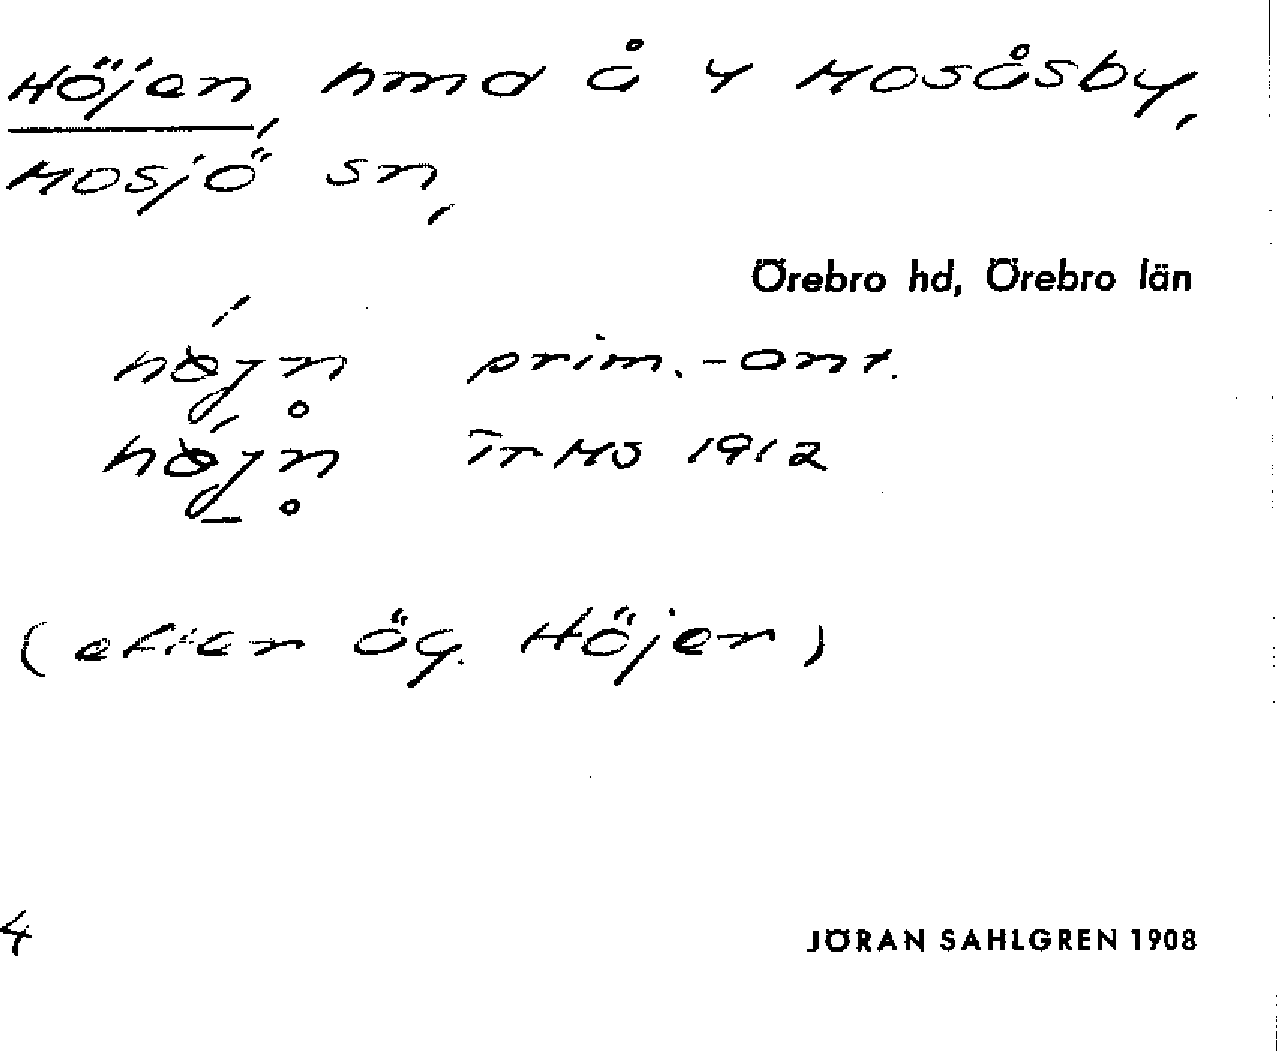 Höjen, hmd å 4 Mosåsby,
Mosjö sn,
Örebro hd, Örebro län
prim.-ant.
1912
(efter äg. Höjer)
4
JÖRAN SAHLGREN 1908